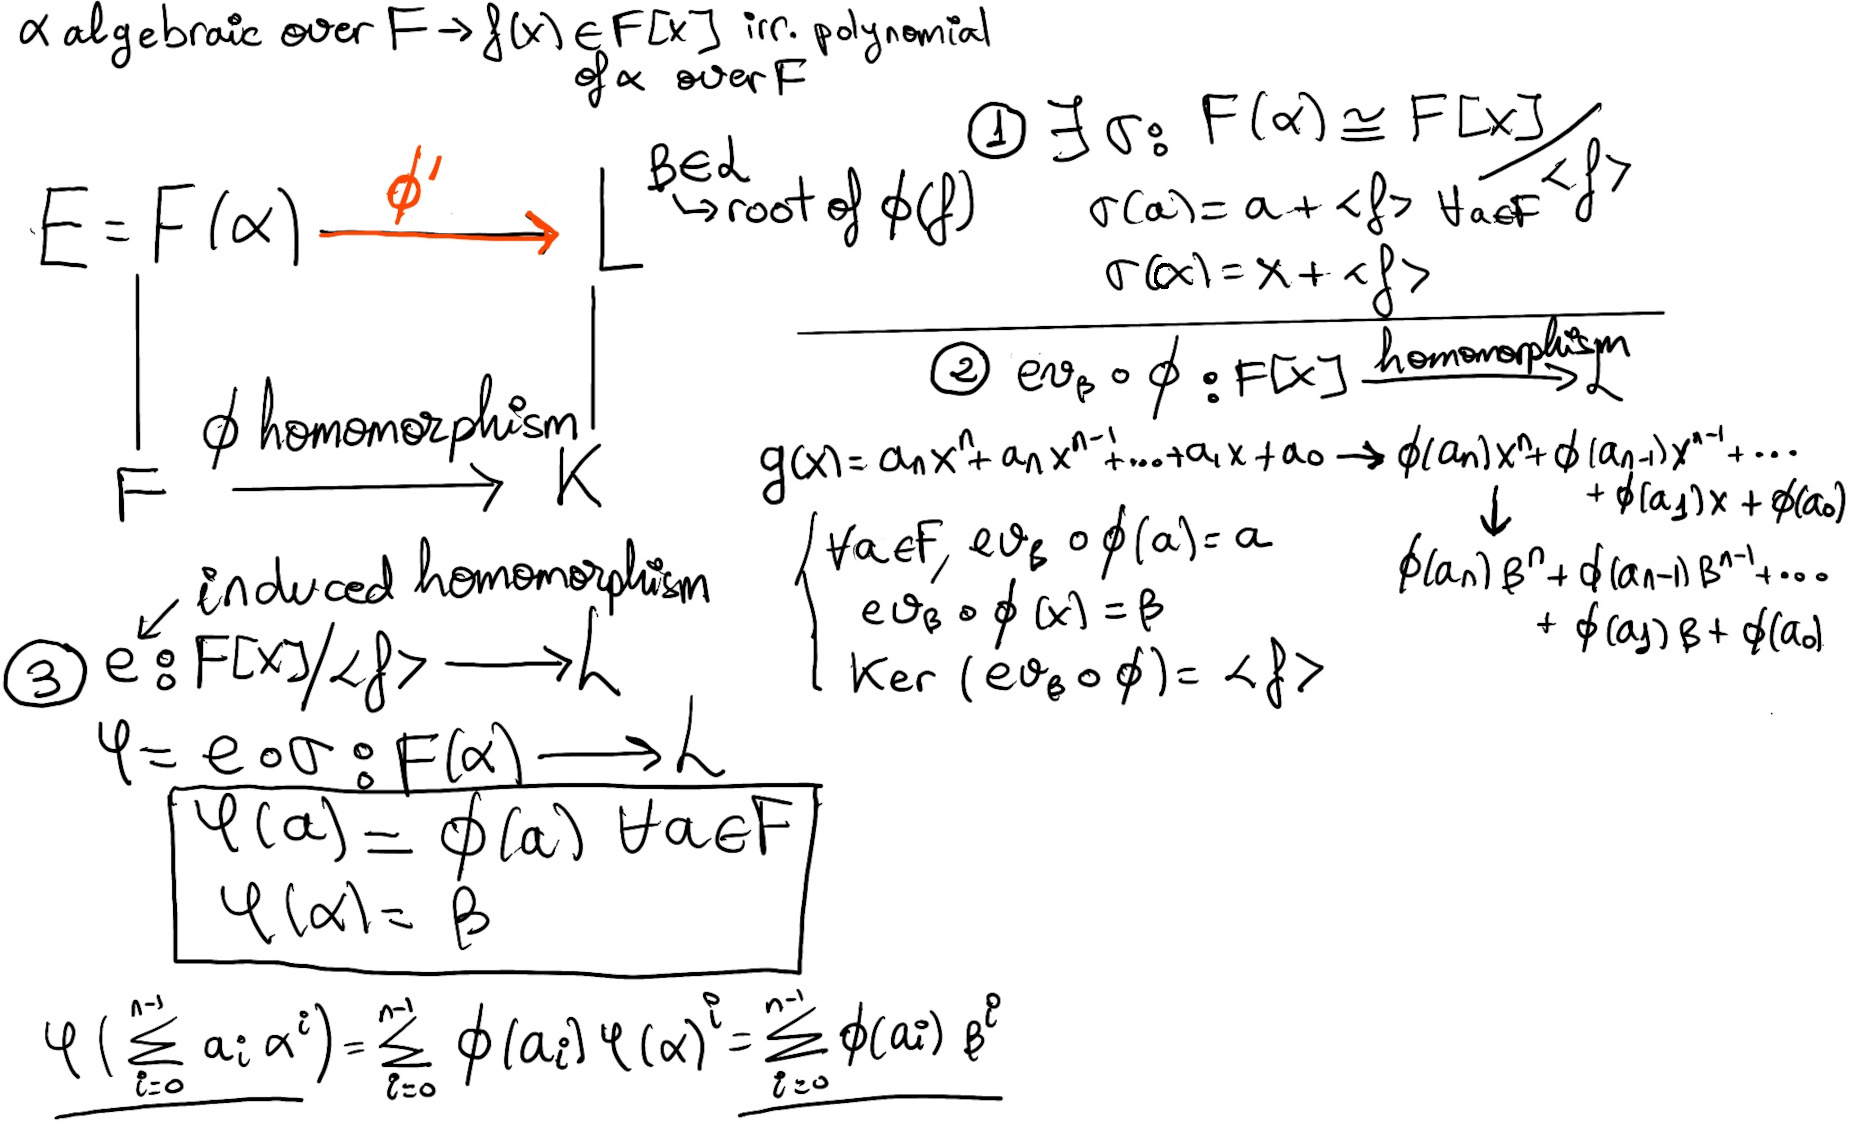 α algebraic over F → f(x) ∈ F[x] irr. polynomial
of α over F
E = F(α) ϕ' L
β∈L
↪ root of ϕ(f)
ϕ homomorphism
F → K
① ∃ σ: F(α) ≅ F[x]/<f>
σ(a) = a + <f> ∀a∈F
σ(α) = x + <f>
② ev_β ∘ ϕ : F[x] homomorphism → L
g(x) = a_n x^n + a_n x^{n-1} + ... + a_1 x + a_0 → ϕ(a_n) x^n + ϕ(a_{n-1}) x^{n-1} + ...
+ ϕ(a_1) x + ϕ(a_0)
↓
ϕ(a_n) β^n + ϕ(a_{n-1}) β^{n-1} + ...
+ ϕ(a_1) β + ϕ(a_0)
∀a∈F, ev_β ∘ ϕ(a) = a
ev_β ∘ ϕ(x) = β
Ker (ev_β ∘ ϕ) = <f>
induced homomorphism
③ e : F[x]/<f> → L
φ = e ∘ σ : F(α) → L
φ(a) = ϕ(a) ∀a∈F
φ(α) = β
φ(∑_{i=0}^{n-1} a_i α^i) = ∑_{i=0}^{n-1} ϕ(a_i) φ(α)^i = ∑_{i=0}^{n-1} ϕ(a_i) β^i